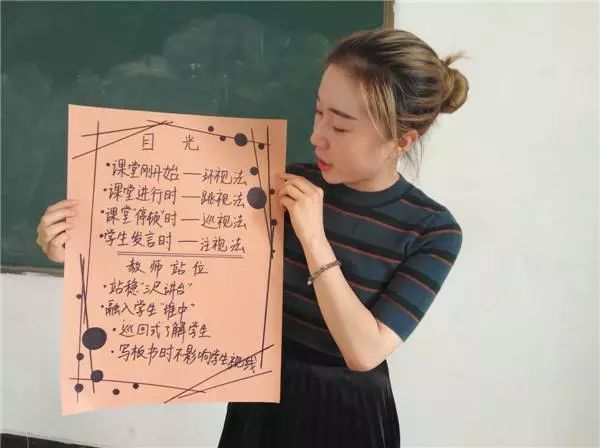 目光
·课堂刚开始——环视法
·课堂进行时——跳视法
·课堂"停顿"时——巡视法
·学生发言时——注视法
教师站位
·站稳"三尺讲台"
·融入学生"堆中"
·巡回式了解学生
·写板书时不影响学生视线